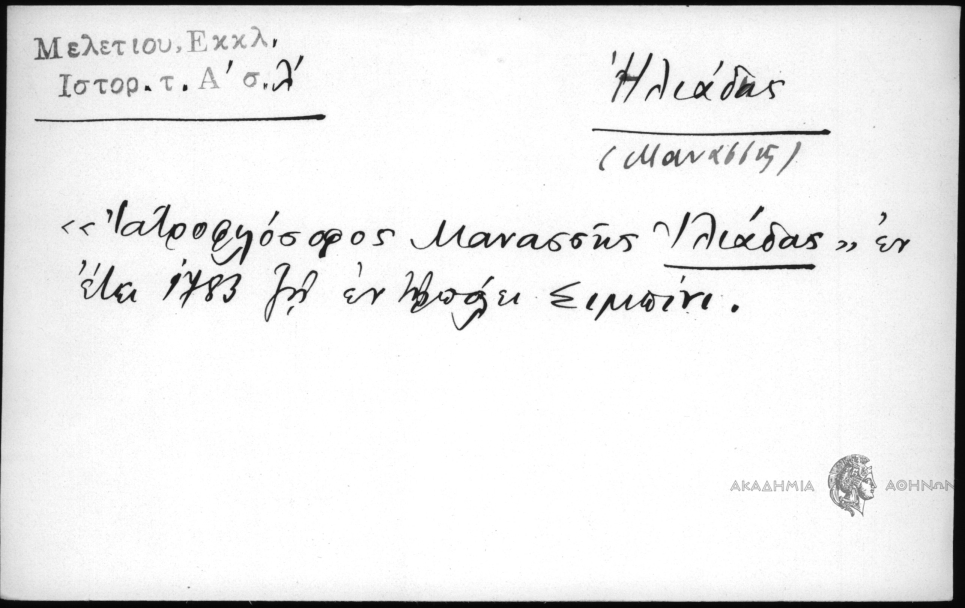 Μελετίου, Εκκλ.
Ιστορ. τ. Α' σ. λ'
Ἠλιάδης
(Μανασσῆς)
«Ἰατροφιλόσοφος Μανασσῆς Ἠλιάδας» ἐν
ἔτει 1783 ζῇ ἐν πόλει Σιμπίνι.
ΑΚΑΔΗΜΙΑ ΑΘΗΝΩΝ